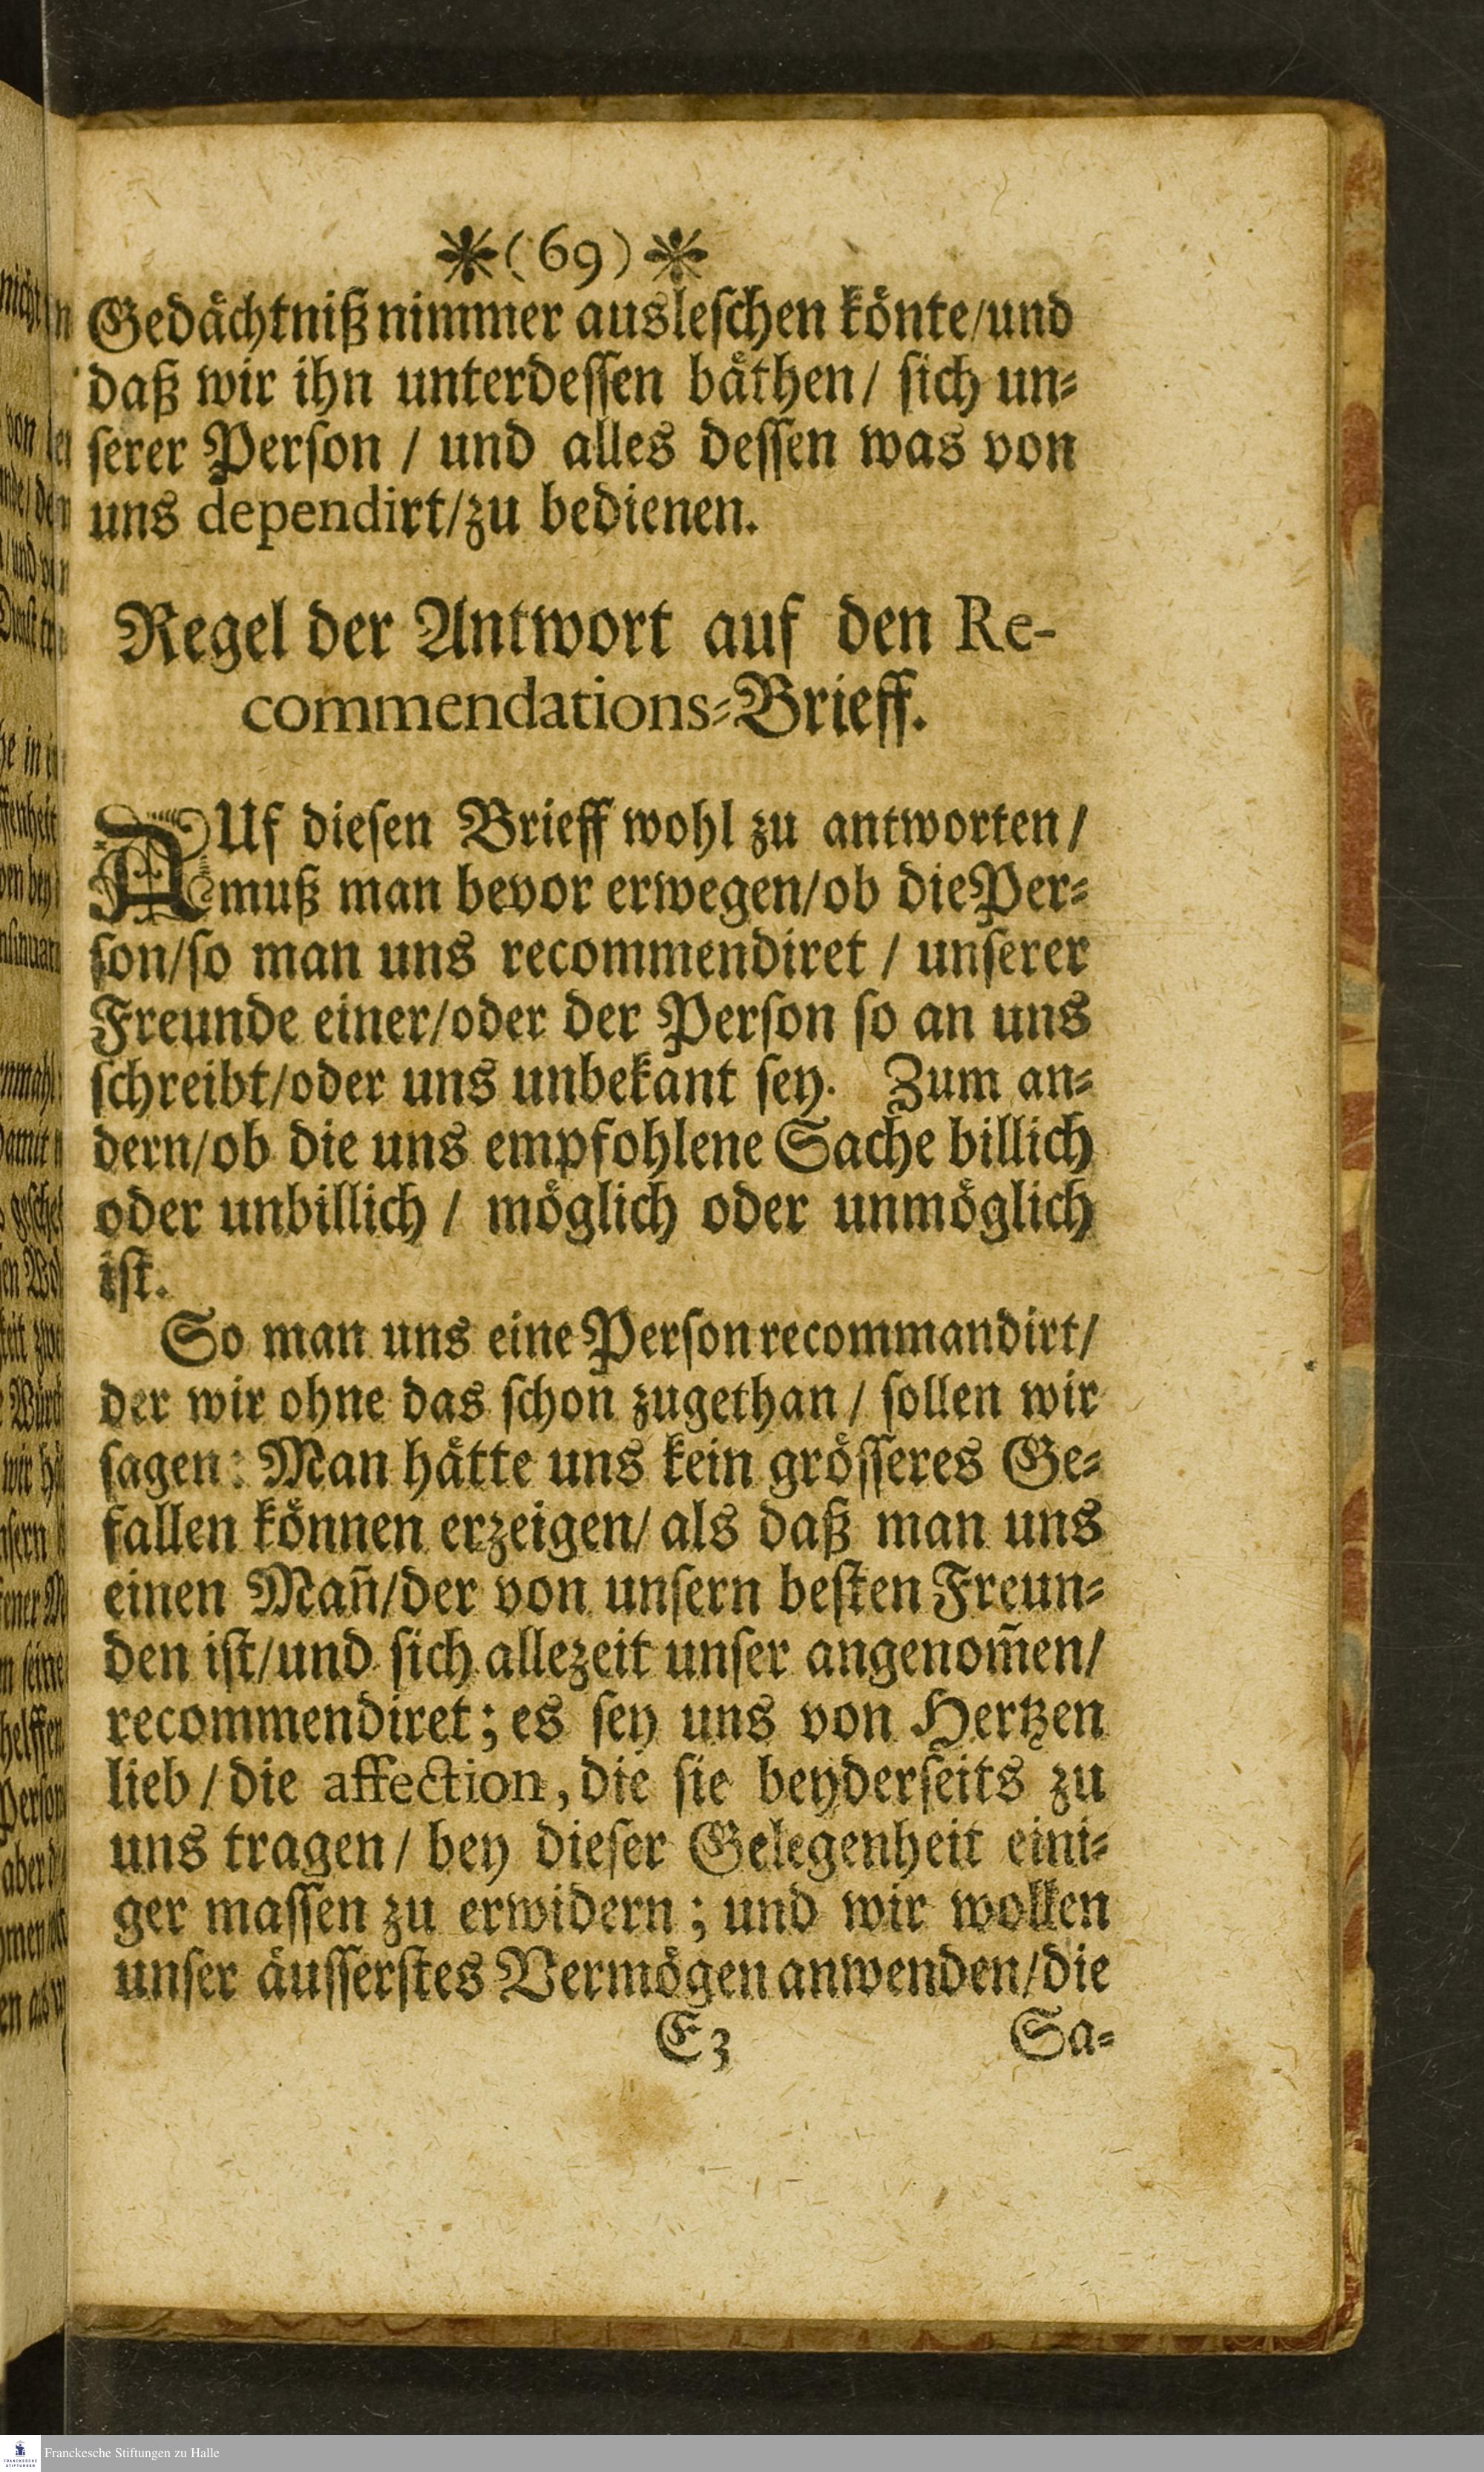 *(69)*
Gedächtniß nimmer ausleschen könte/und
daß wir ihn unterdessen bäthen/ sich un-
serer Person / und alles dessen was von
uns dependirt/zu bedienen.
Regel der Antwort auf den Re-
commendations-Brieff.
AUf diesen Brieff wohl zu antworten/
muß man bevor erwegen/ob die Per-
son/so man uns recommendiret / unserer
Freunde einer/oder der Person so an uns
schreibt/oder uns unbekant sey. Zum an-
dern/ob die uns empfohlene Sache billich
oder unbillich / möglich oder unmöglich
ist.
So man uns eine Person recommandirt/
der wir ohne das schon zugethan / sollen wir
sagen: Man hätte uns kein grösseres Ge-
fallen können erzeigen/ als daß man uns
einen Mañ/der von unsern besten Freun-
den ist/und sich allezeit unser angenom̃en/
recommendiret; es sey uns von Hertzen
lieb / die affection, die sie beyderseits zu
uns tragen / bey dieser Gelegenheit eini-
ger massen zu erwidern ; und wir wollen
unser äusserstes Vermögen anwenden/die
E3 Sa-
Franckesche Stiftungen zu Halle